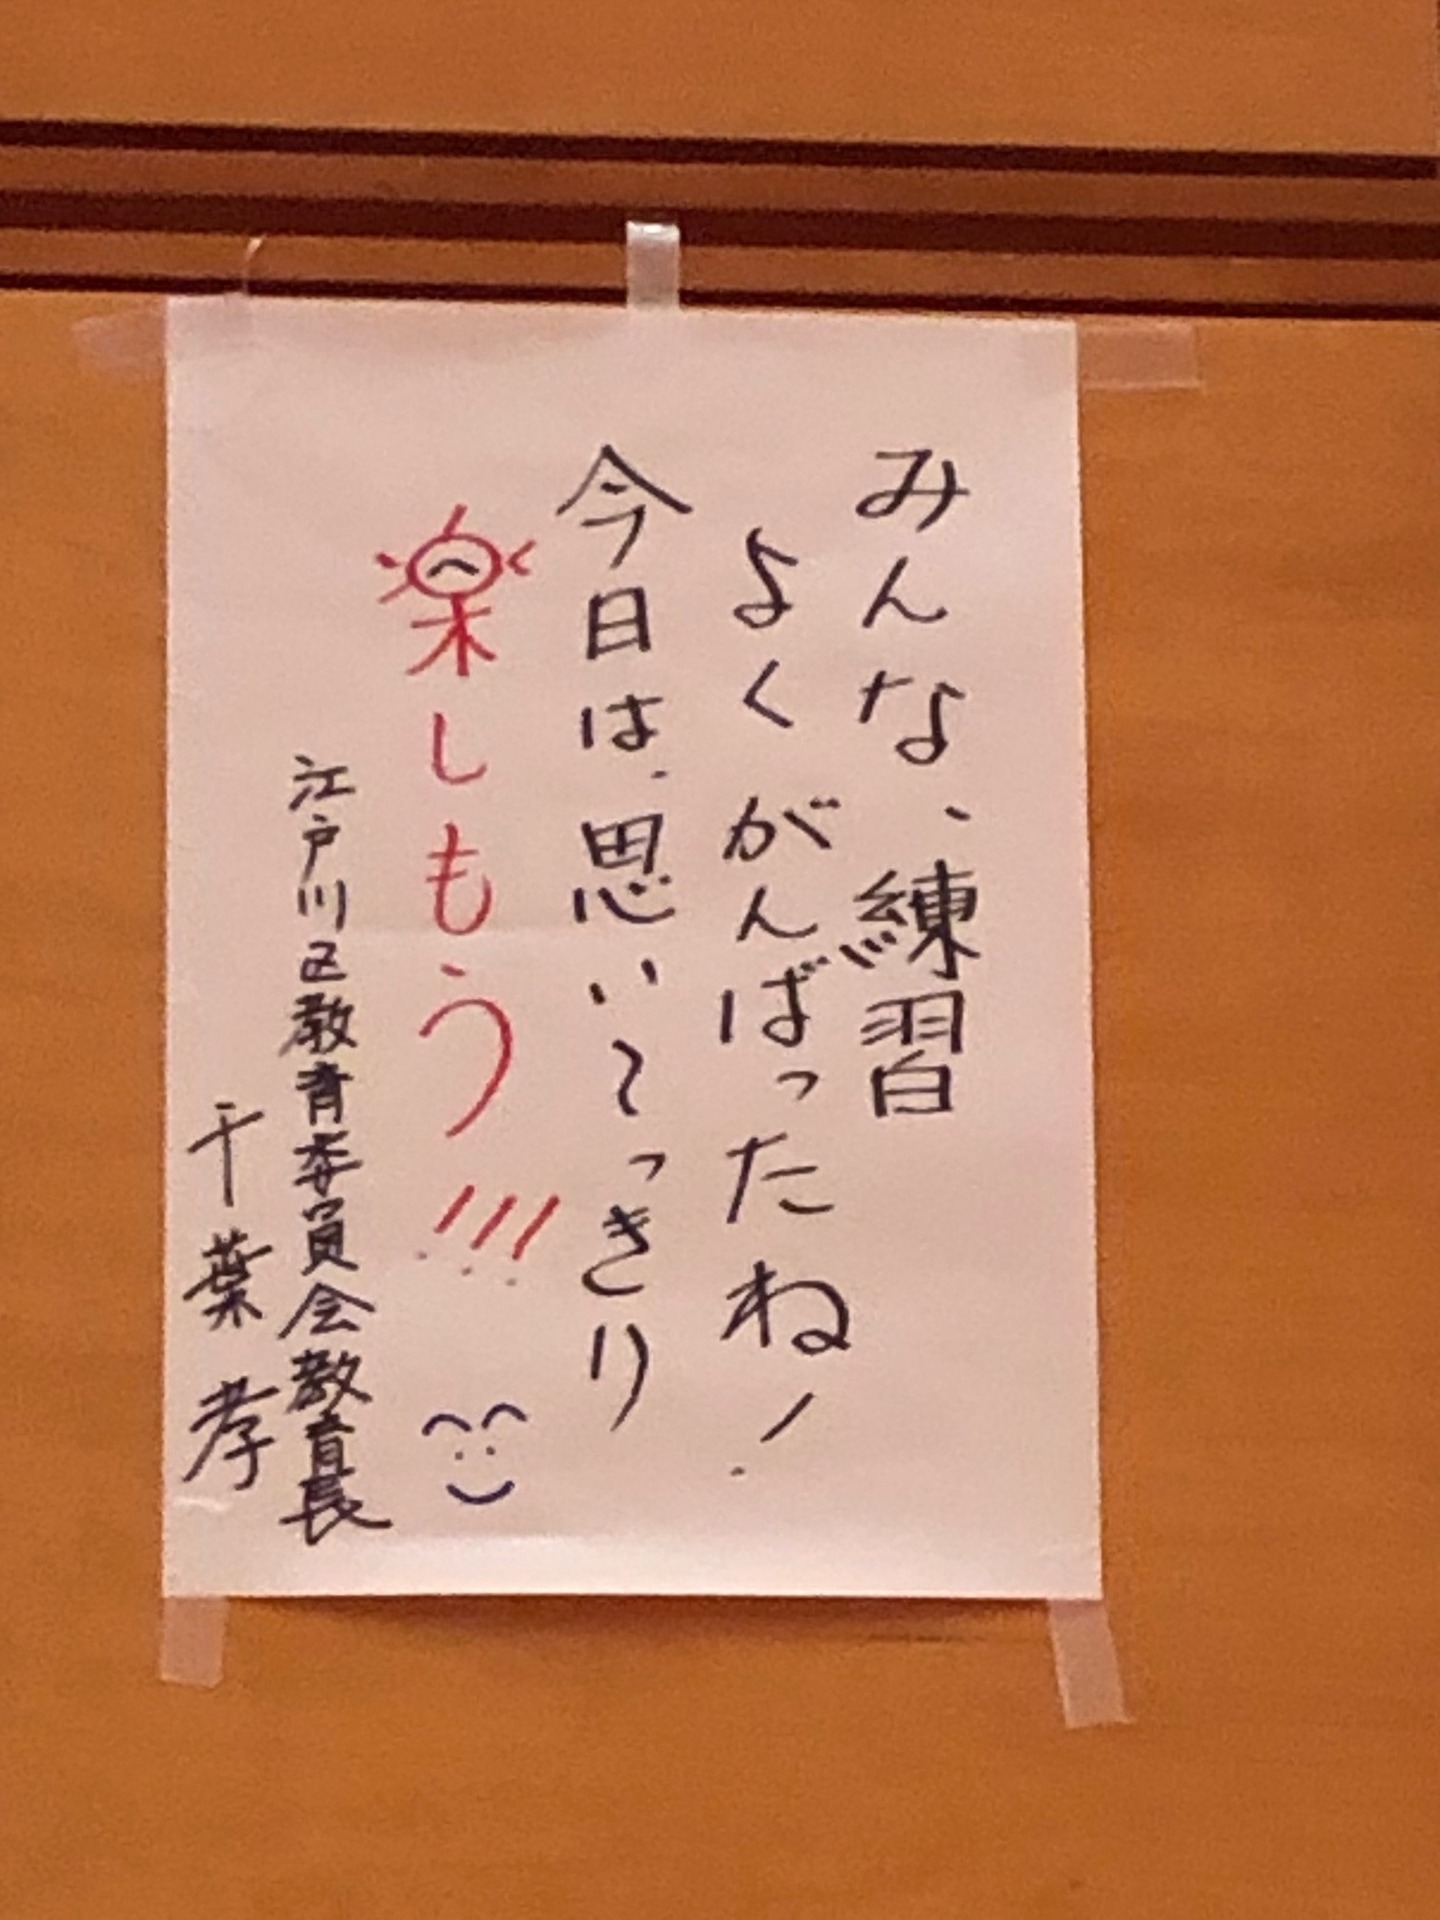 みんな、練習
よくがんばったね!
今日は、思いっきり
楽しもう!!!
江戸川区教育委員会教育長
千葉孝